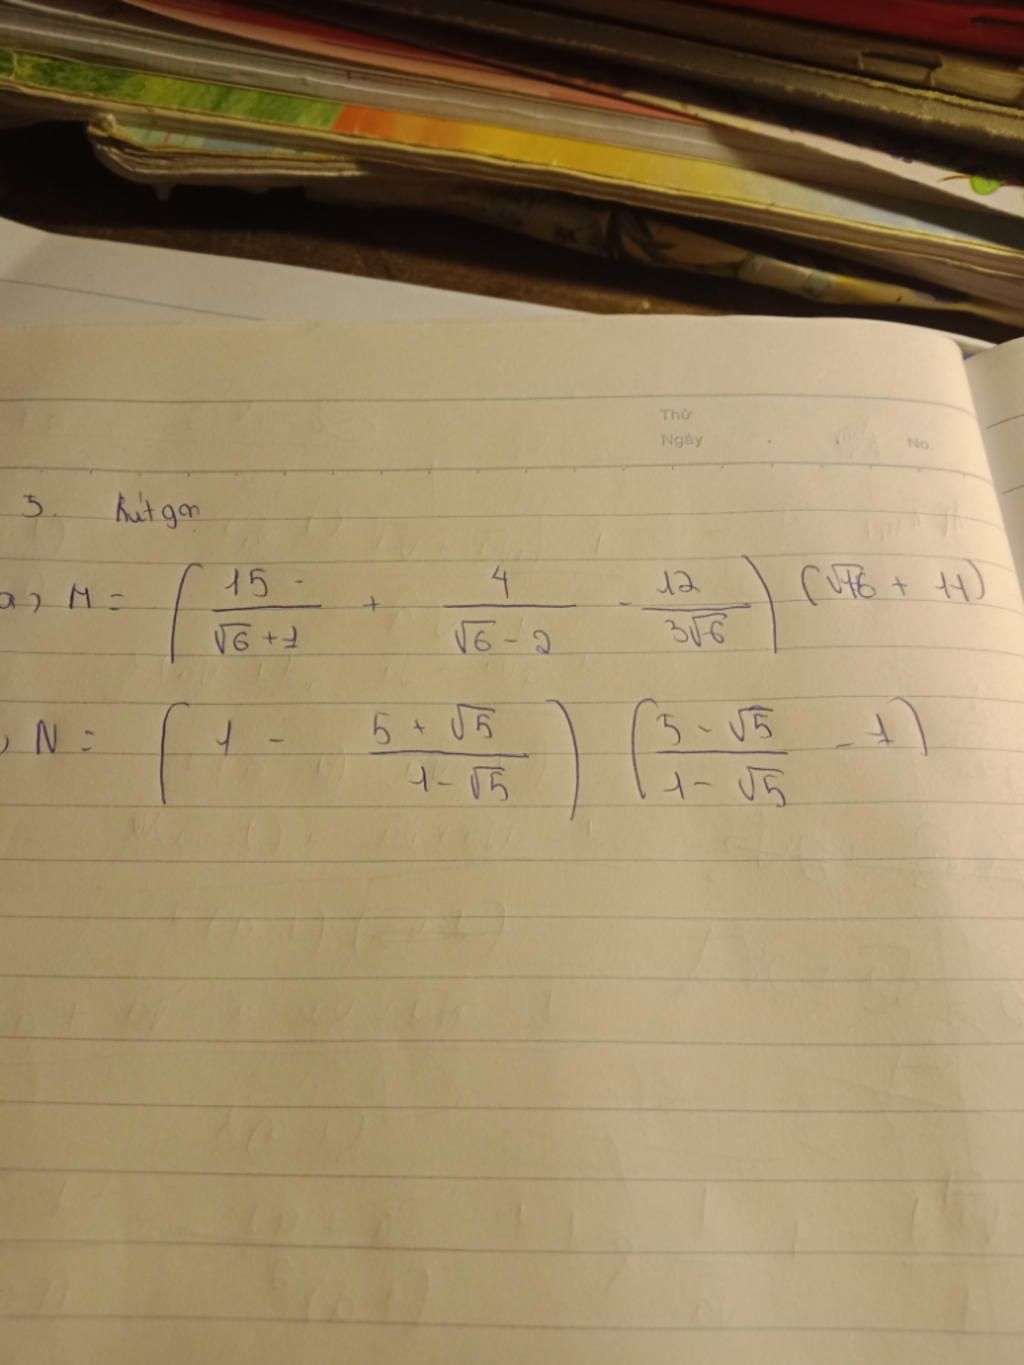 Thứ
Ngày No.
3. Rút gọn
a) M = (15/(√6 + 1) + 4/(√6 - 2) - 12/(3√6)) (√6 + 11)
) N = (1 - (5 + √5)/(1 - √5)) ((5 - √5)/(1 - √5) - 1)